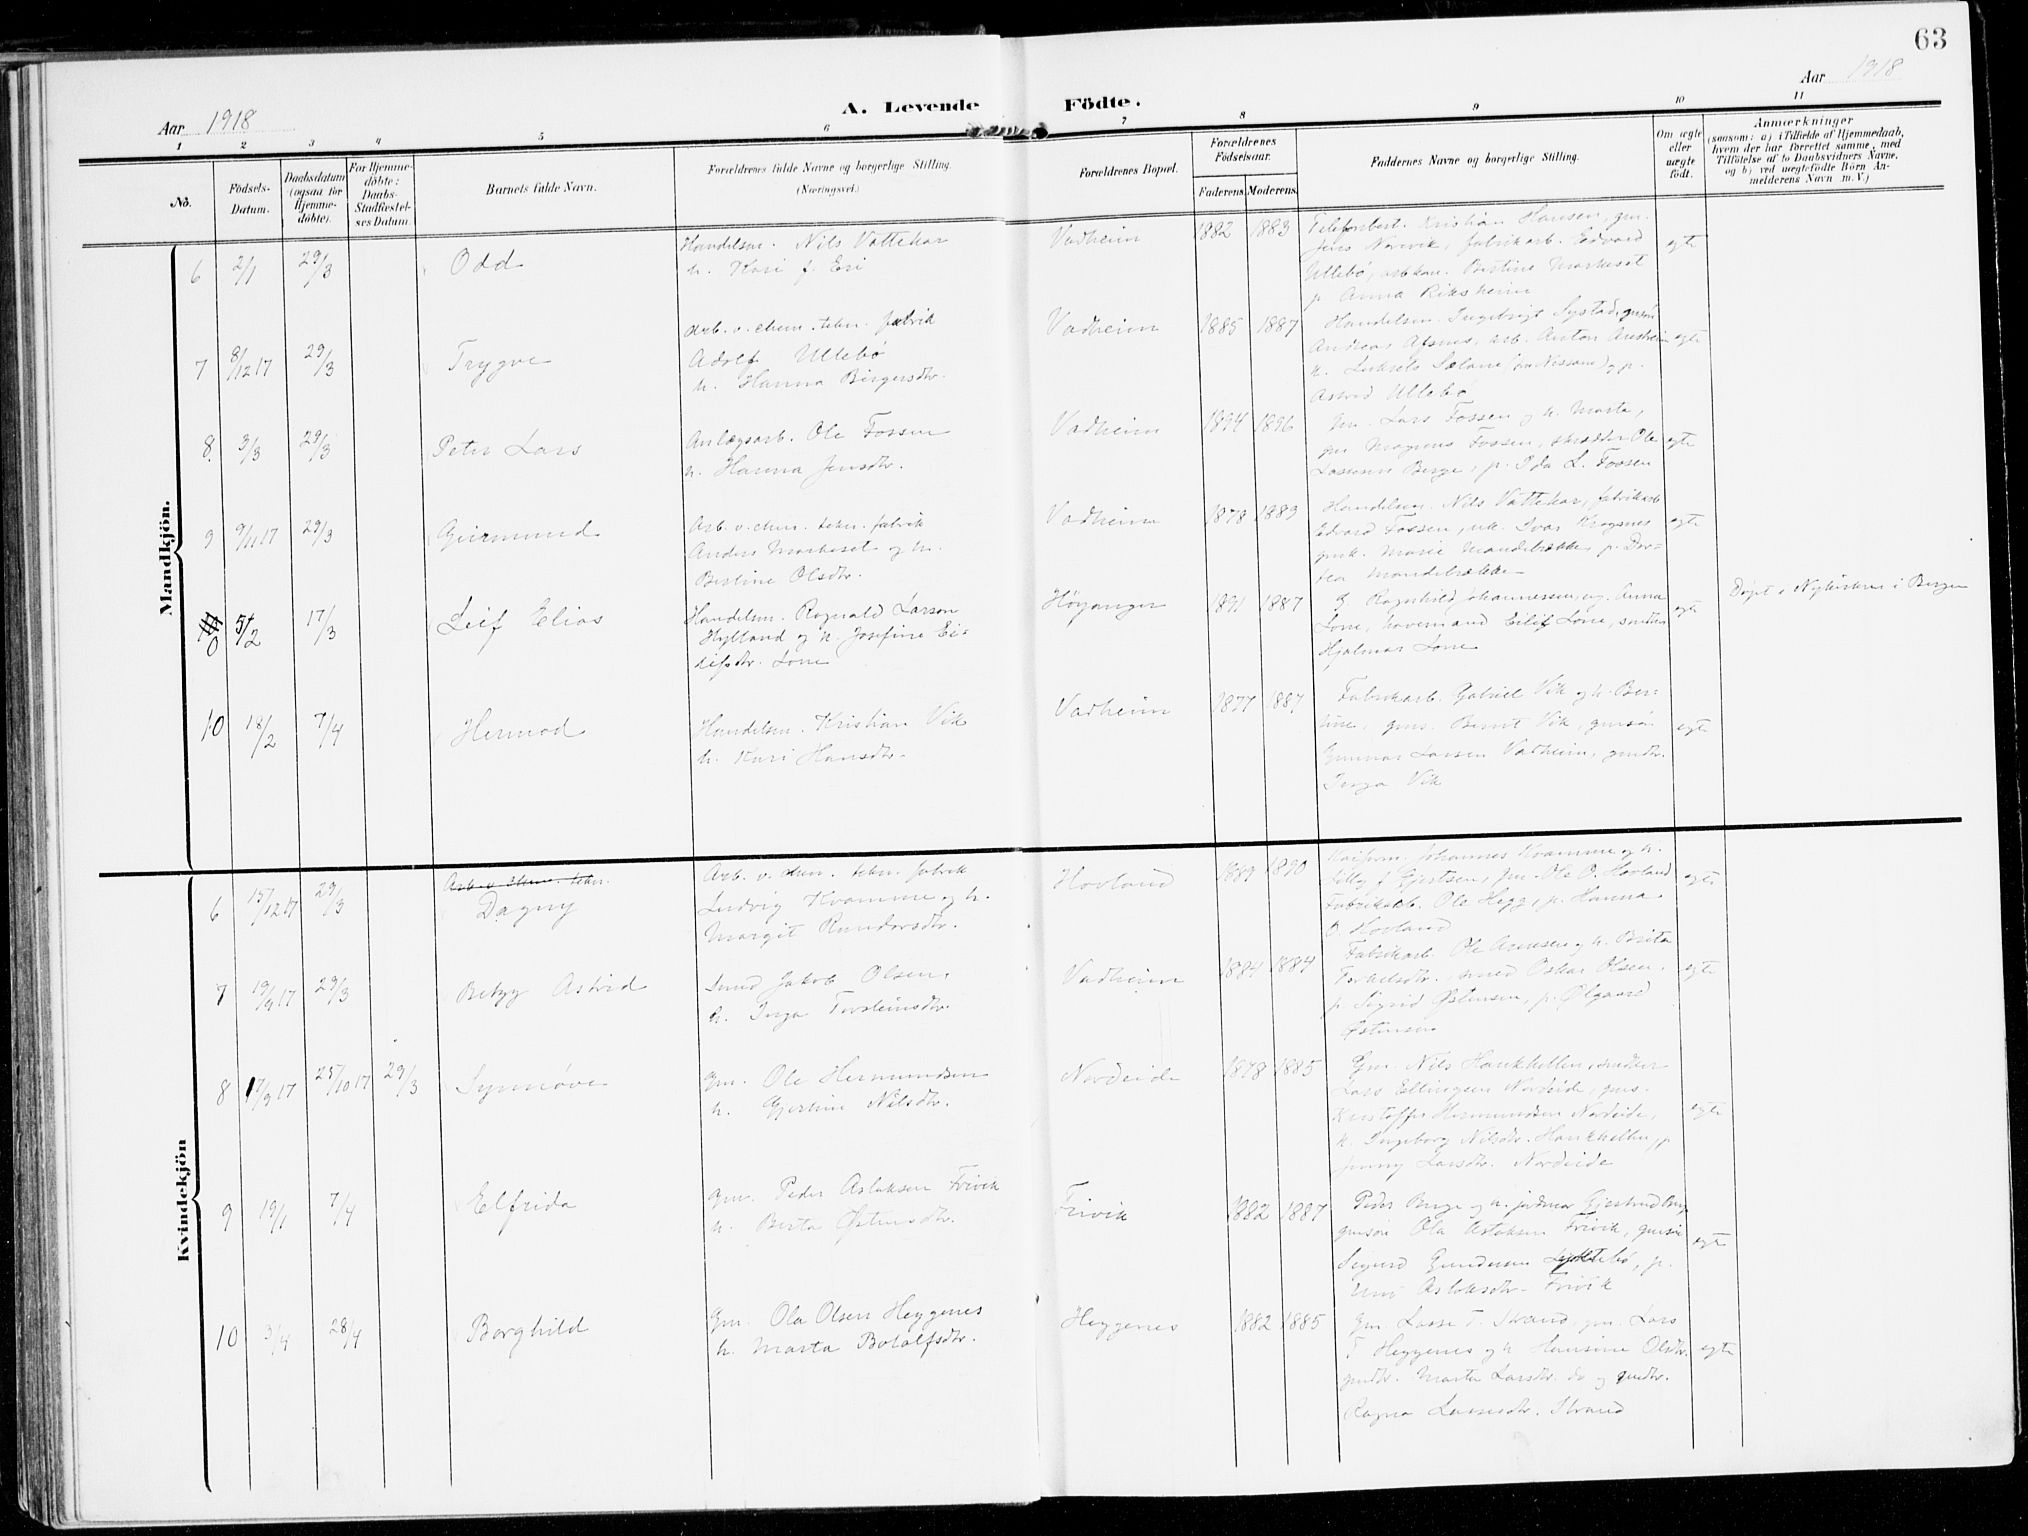 63
Aar 1918
A. Levende
Födte.
Aar 1918
1 2 3 4 5 6 7 8 9 10 11
No.
Födsels-
Datum.
Daabsdatum
(ogsaa for
Hjemme-
döbte).
For Hjemme-
döbte:
Daabs-
Stadfæstel-
ses Datum.
Barnets fulde Navn.
Forældrenes fulde Navne og borgerlige Stilling.
(Næringsvei.)
Forældrenes Bopæl.
Forældrenes
Födselsaar.
Faderens. Moderens.
Faddernes Navne og borgerlige Stilling.
Om ægte
eller
uægte
födt.
Anmærkninger
(saasom: a) i Tilfælde af Hjemmedaab,
hvem der har forrettet samme, med
Tilföielse af to Daabsvidners Navne,
og b) ved uægtefödte Börn An-
melderens Navn m. V.)
Mandkjön.
6 2/1 29/3 Odd
Handelsm. Nils Vattekar
h. Kari f. Eri
Vadheim 1882 1883
Telefonbest. Kristian Hansen, gm.
Jens Norevik, fabrikarb. Edvard
Ullebø, Bertine Markeset
p. Anna Riksheim
egte
7 8/12 17 29/3 Trygve
Arb. v. chem. tekn. fabrik
Adolf Ullebø
h. Hanna Birgersdtr.
Vadheim 1885 1887
Handelsm. Ingebrigt Systad, gmsøn
Andreas arb. Anton
Astrid Ullebø
egte
8 3/3 29/3 Peter Lars
Anlægsarb. Ole Fossen
h. Hanna Jensdtr.
Vadheim 1894 1896
Gm. Lars Fossen og h. Marta,
gm Magnus Fossen, skrædder Ole
Lassesen Berge, p. Ida L. Fossen
egte
9 9/11 17 29/3 Geirmund
Arb. v. chem. tekn. fabrik
Anders Markeset og h.
Bertine Olsdtr.
Vadheim 1878 1889
Handelsm. Nils Vattekar, fabrikarb
Edvard Fossen, uk. Ivar
Marie p. Dor-
tea
egte
10 5/2 17/3 Leif Elias
Handelsm. Ragnald Larson
Hylland og h. Josefine Ei-
lifsdtr. Lone
Høyanger 1891 1887
G. Ragnhild Johannessen, ug. Anna
Lone, Eilif Lone, smed
Hjalmar Lone
egte
Døpt i Nykirken i Bergen
10 18/2 7/4 Hermod
Handelsm. Kristian Vik
h. Kari Hansdtr.
Vadheim 1877 1887
Fabrikarb. Gabriel Vik og h. Ber-
tine, gms. Berit Vik, gmsøn
Gunnar Larsen Vadheim, gmdtr.
Inga Vik
egte
Kvindekjön
6 15/12 17 29/3
Arb. v. chem. tekn.
Dagny
Arb. v. chem. tekn. fabrik
Ludvig Kvamme og h.
Margit Rundersdtr.
Hovland 1889 1890
Johannes Kvamme og h.
Lilly f. Gjertsen, gm. Ole O. Hovland
Fabrikarb. Ole Hegg, p. Hanna
O. Hovland
egte
7 19/9 17 29/3 Betzy Astrid
Smed Jakob Olsen
h. Inga Torsteinsdtr.
Vadheim 1884 1884
Fabrikarb. Ole Arnesen og h. Brita
Torkelsdtr., smed Oskar Olsen,
p. Sigrid Østensen, p. Olgaard
Østensen
egte
8 17/9 17 25/10 17 29/3 Synnøve
Gm. Ole Hermundsen
h. Gjertine Nilsdtr.
Nordeide 1878 1885
Gm. Nils Haukhellen, snedker
Lars Ellingsen Nordeide, gms.
Kristoffer Hermundsen Nordeide,
h. Ingeborg Nilsdtr. Haukhellen, p
Jenny Larsdtr. Nordeide
egte
9 19/1 7/4 Elfrida
Gm. Peder Aslaksen Frivik
h. Berta Østensdtr.
Frivik 1882 1887
Peder Berge og h. jordmor Gjertrud Berge
gmsøn Ola Aslaksen Frivik, gmsøn
Sigurd Gundersen Lyktebø, p.
Uni Aslaksdtr. Frivik
egte
10 3/4 28/4 Borghild
Gm. Ola Olsen Heggenes
h. Marta Botolfsdtr.
Heggenes 1882 1885
Gm. Lasse T. Strand, gm. Lars
T. Heggenes og h. Hansine Olsdtr.
gmdtr. Marta Larsdtr. do og gmdtr.
Ragna Lassesdtr. Strand
egte